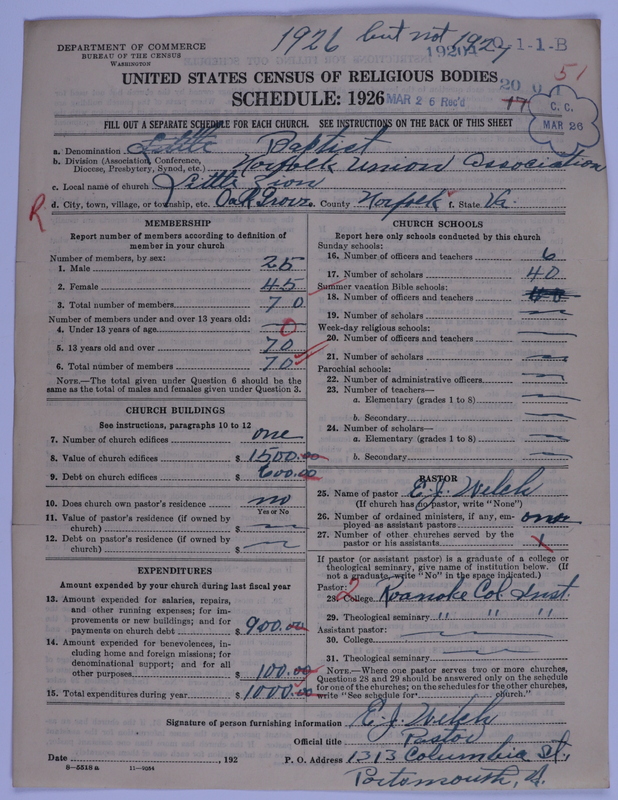 1926 but not 1927
DEPARTMENT OF COMMERCE
BUREAU OF THE CENSUS
WASHINGTON
1-1-B
UNITED STATES CENSUS OF RELIGIOUS BODIES
51
SCHEDULE: 1926
MAR 26 Rec'd
17
C. C.
MAR 26
FILL OUT A SEPARATE SCHEDULE FOR EACH CHURCH. SEE INSTRUCTIONS ON THE BACK OF THIS SHEET
a. Denomination Baptist
b. Division (Association, Conference, Diocese, Presbytery, Synod, etc.) Norfolk Union Association
c. Local name of church Little Zion
d. City, town, village, or township, etc. Oak Grove County Norfolk f. State Va.
R
MEMBERSHIP
Report number of members according to definition of member in your church
Number of members, by sex:
1. Male 25
2. Female 45
3. Total number of members 70
Number of members under and over 13 years old:
4. Under 13 years of age 0
5. 13 years old and over 70
6. Total number of members 70
NOTE.—The total given under Question 6 should be the same as the total of males and females given under Question 3.
CHURCH BUILDINGS
See instructions, paragraphs 10 to 12
7. Number of church edifices one
8. Value of church edifices $ 1500.00
9. Debt on church edifices $ 600.00
10. Does church own pastor's residence no
Yes or No
11. Value of pastor's residence (if owned by church) $
12. Debt on pastor's residence (if owned by church) $
EXPENDITURES
Amount expended by your church during last fiscal year
13. Amount expended for salaries, repairs, and other running expenses; for improvements or new buildings; and for payments on church debt $ 900.00
14. Amount expended for benevolences, including home and foreign missions; for denominational support; and for all other purposes $ 100.00
15. Total expenditures during year $ 1000.00
CHURCH SCHOOLS
Report here only schools conducted by this church
Sunday schools:
16. Number of officers and teachers 6
17. Number of scholars 40
Summer vacation Bible schools:
18. Number of officers and teachers
19. Number of scholars
Week-day religious schools:
20. Number of officers and teachers
21. Number of scholars
Parochial schools:
22. Number of administrative officers
23. Number of teachers—
a. Elementary (grades 1 to 8)
b. Secondary
24. Number of scholars—
a. Elementary (grades 1 to 8)
b. Secondary
PASTOR
25. Name of pastor E. J. Welch
(If church has no pastor, write "None")
26. Number of ordained ministers, if any, employed as assistant pastors
27. Number of other churches served by the pastor or his assistants
If pastor (or assistant pastor) is a graduate of a college or theological seminary, give name of institution below. (If not a graduate, write "No" in the space indicated.)
Pastor: 2
28. College Roanoke Col. Inst.
29. Theological seminary " " "
Assistant pastor:
30. College
31. Theological seminary
NOTE.—Where one pastor serves two or more churches, Questions 28 and 29 should be answered only on the schedule for one of the churches; on the schedules for the other churches, write "See schedule for church."
Signature of person furnishing information E. J. Welch
Official title Pastor
Date , 192 P. O. Address 1313 Columbia St.,
8—5518 a 11—9264
Portsmouth, Va.